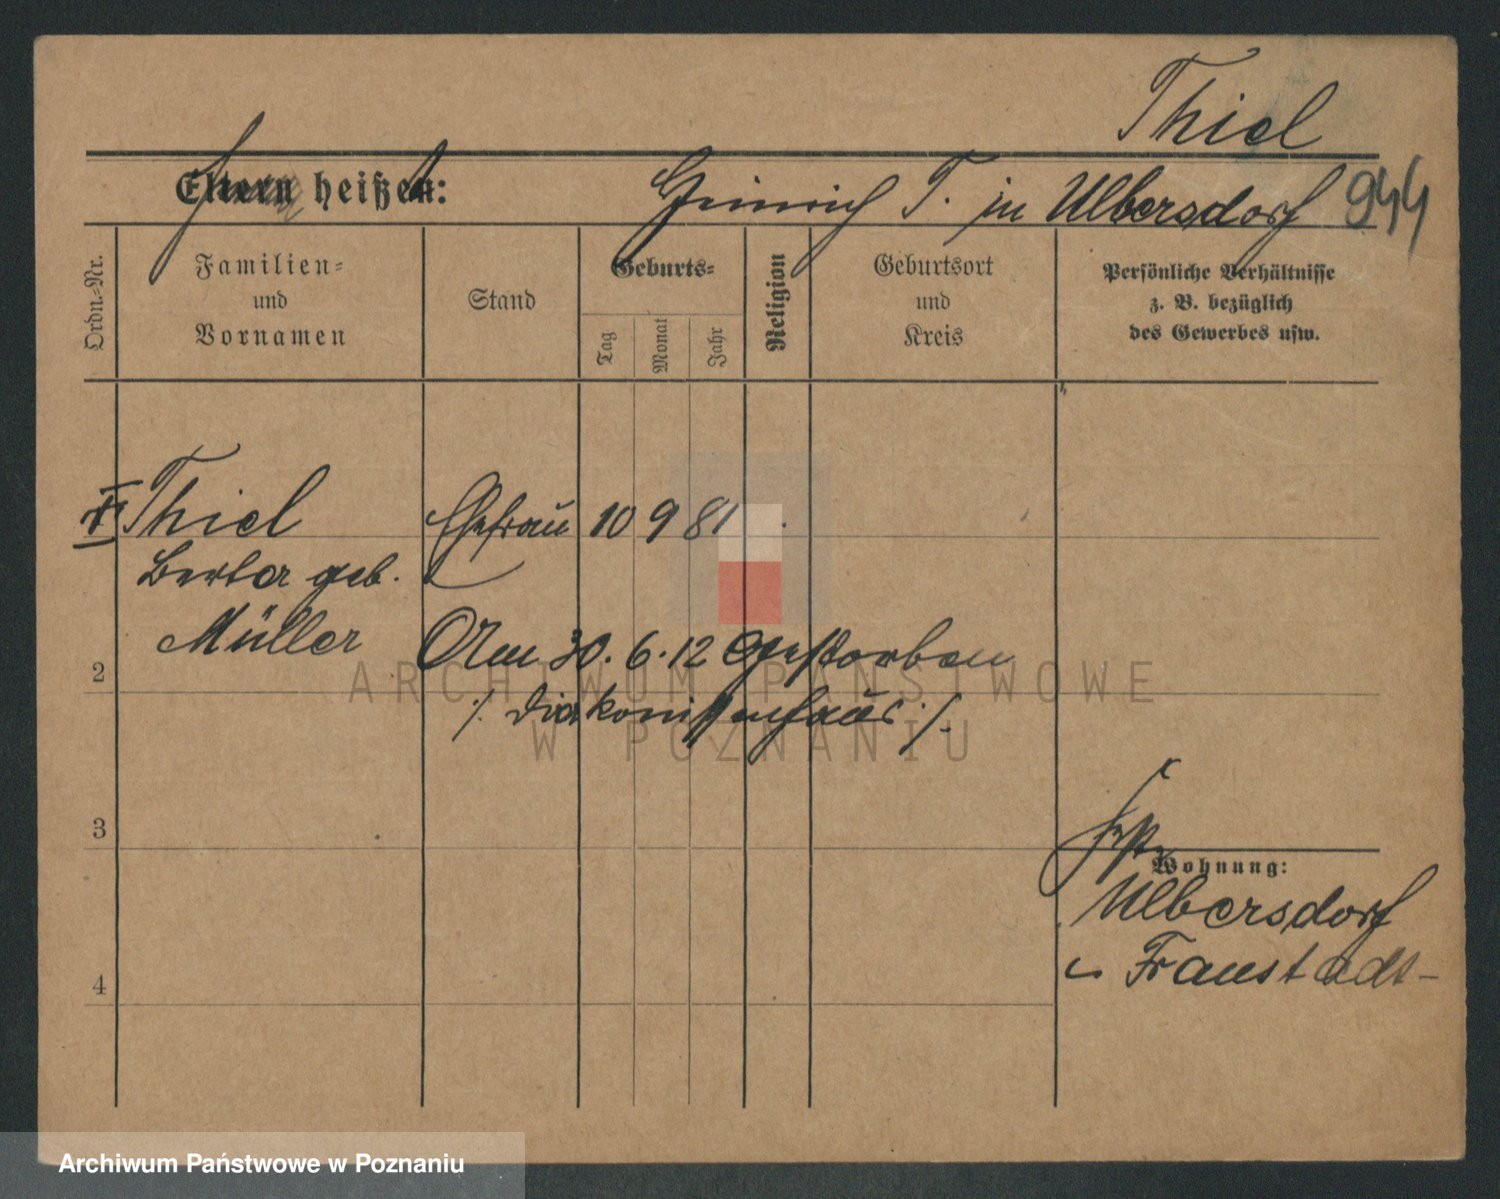 Thiel
Eltern heißen: Heinrich T. in Ulbersdorf 944
Ordn.-Nr.
Familien-
und
Vornamen
Stand
Geburts-
Tag
Monat
Jahr
Religion
Geburtsort
und
Kreis
Persönliche Verhältnisse
z. B. bezüglich
des Gewerbes usw.
Thiel Ehefrau 10 9 81
Berta geb.
Müller Am 30. 6. 12 gestorben
2
/. Diakonissenhaus ./.
3
Wohnung:
Ulbersdorf
Fraustadt
4
ARCHIWUM PAŃSTWOWE
W POZNANIU
Archiwum Państwowe w Poznaniu